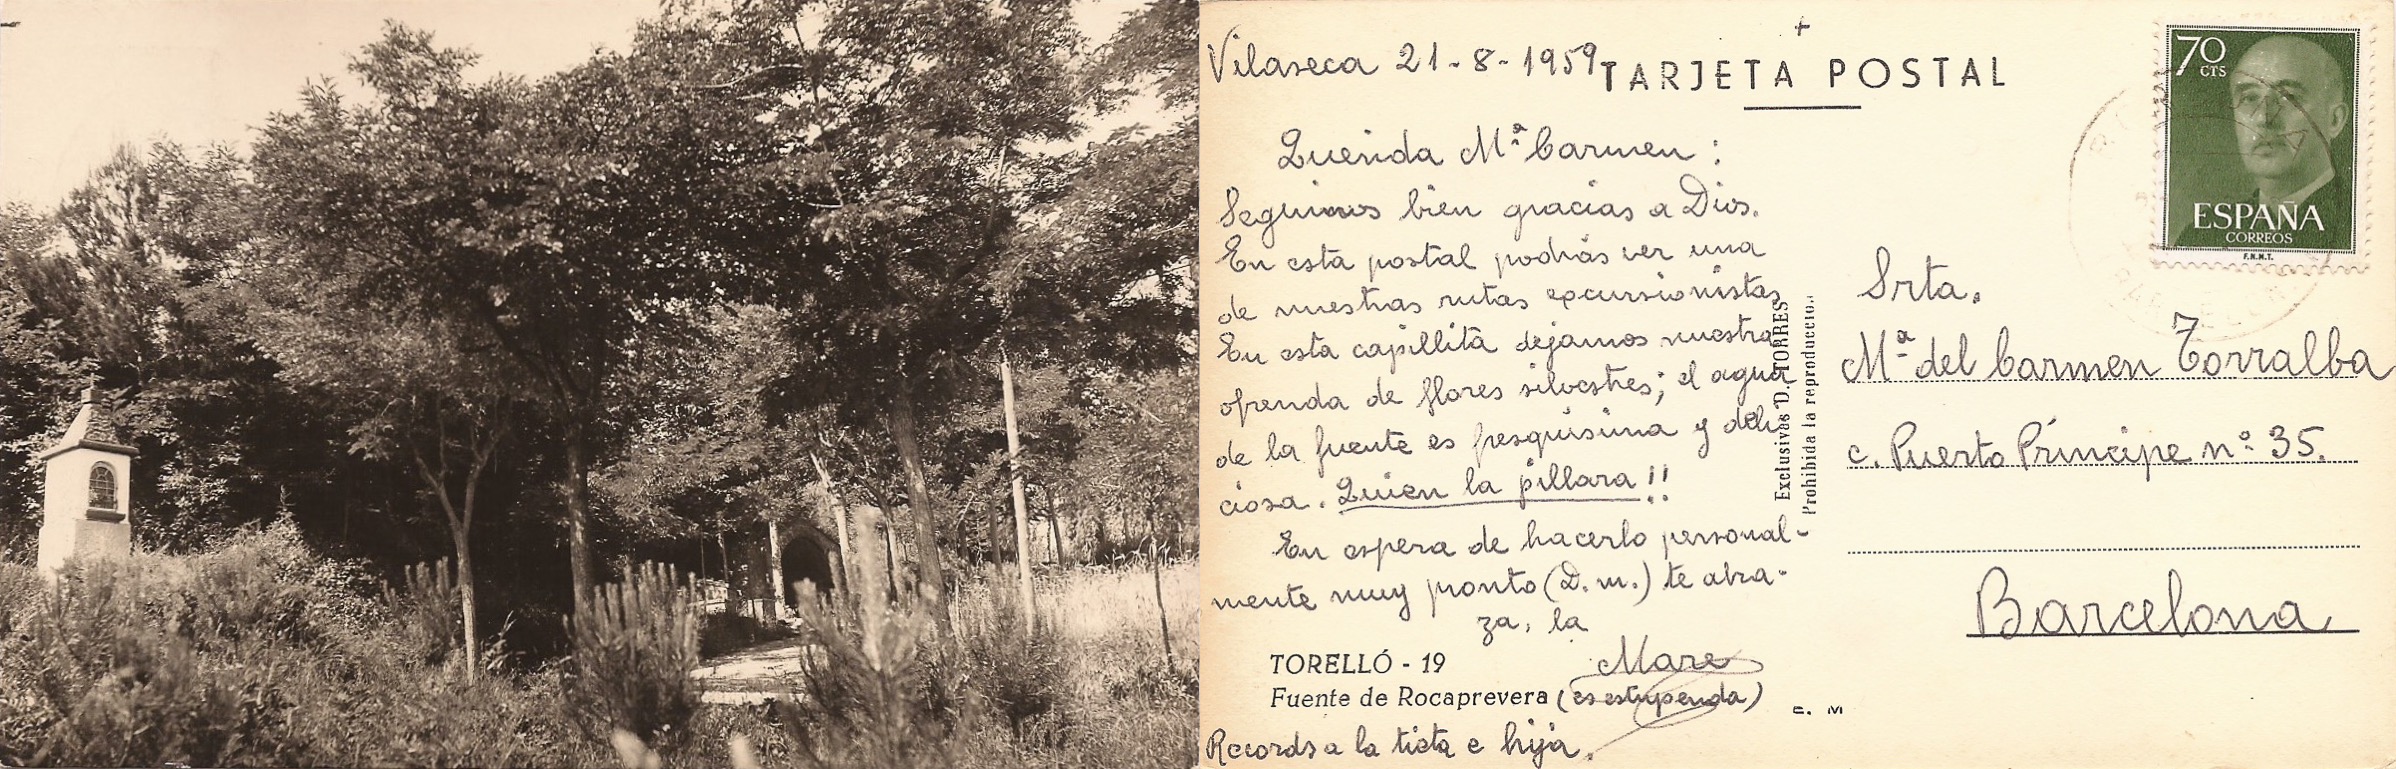 Vilaseca 21-8-1959
TARJETA POSTAL
Querida Mª Carmen:
Seguimos bien gracias a Dios.
En esta postal podrás ver una
de nuestras rutas excursionistas
En esta capillita dejamos nuestra
ofrenda de flores silvestres; el agua
de la fuente es fresquisima y deli-
ciosa. Quien la pillara!!
En espera de hacerlo personal-
mente muy pronto (D. m.) te abra-
za, la
Mare
TORELLÓ - 19
Fuente de Rocaprevera (es estupenda)
Records a la tieta e hija.
Exclusivas D. TORRES
Prohibida la reproducción
C. M
70
CTS
ESPAÑA
CORREOS
F.N.M.T.
Srta.
Mª del Carmen Torralba
c. Puerto Príncipe nº 35.
Barcelona